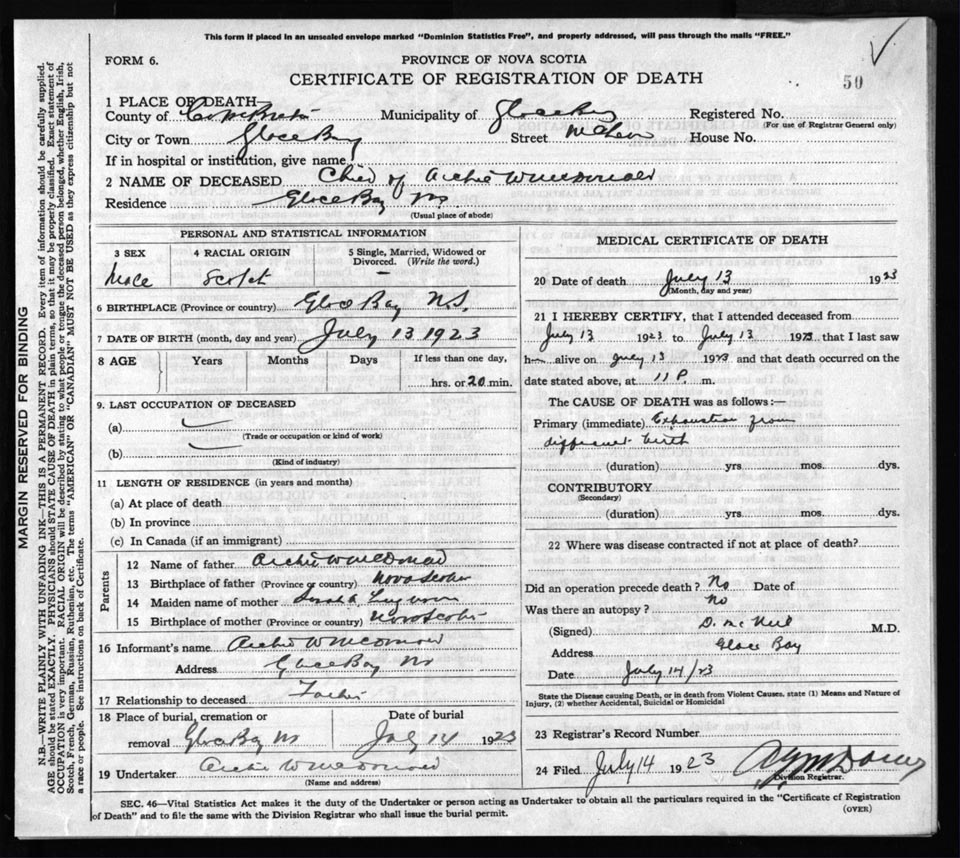 This form if placed in an unsealed envelope marked "Dominion Statistics Free", and properly addressed, will pass through the mails "FREE."
FORM 6.
PROVINCE OF NOVA SCOTIA
50
CERTIFICATE OF REGISTRATION OF DEATH
1 PLACE OF DEATH
County of Cape Breton Municipality of Glace Bay Registered No.
(For use of Registrar General only)
City or Town Glace Bay Street McLean House No.
If in hospital or institution, give name
2 NAME OF DECEASED Child of Archie W McDonald
Residence Glace Bay NS
(Usual place of abode)
PERSONAL AND STATISTICAL INFORMATION
3 SEX 4 RACIAL ORIGIN 5 Single, Married, Widowed or Divorced. (Write the word.)
Male Scotch –
6 BIRTHPLACE (Province or country) Glace Bay N.S.
7 DATE OF BIRTH (month, day and year) July 13 1923
8 AGE Years Months Days If less than one day,
hrs. or 20 min.
9. LAST OCCUPATION OF DECEASED
(a)
(Trade or occupation or kind of work)
(b)
(Kind of industry)
11 LENGTH OF RESIDENCE (in years and months)
(a) At place of death
(b) In province
(c) In Canada (if an immigrant)
Parents
12 Name of father Archie W McDonald
13 Birthplace of father (Province or country) Nova Scotia
14 Maiden name of mother
15 Birthplace of mother (Province or country) Nova Scotia
16 Informant's name Archie W McDonald
Address Glace Bay NS
17 Relationship to deceased Father
18 Place of burial, cremation or Date of burial
removal Glace Bay NS July 14 1923
19 Undertaker Archie W McDonald
(Name and address)
MEDICAL CERTIFICATE OF DEATH
20 Date of death July 13 1923
(Month, day and year)
21 I HEREBY CERTIFY, that I attended deceased from
July 13 1923 to July 13 1923 that I last saw
h alive on July 13 1923 and that death occurred on the
date stated above, at 11 P. m.
The CAUSE OF DEATH was as follows:—
Primary (immediate) Exhaustion from
difficult birth
(duration) yrs mos. dys.
CONTRIBUTORY
(Secondary)
(duration) yrs mos. dys.
22 Where was disease contracted if not at place of death?
Did an operation precede death? No Date of
Was there an autopsy? No
(Signed) D. McNeil M.D.
Address Glace Bay
Date July 14/23
State the Disease causing Death, or in death from Violent Causes, state (1) Means and Nature of Injury, (2) whether Accidental, Suicidal or Homicidal
23 Registrar's Record Number
24 Filed July 14 1923
Division Registrar.
SEC. 46—Vital Statistics Act makes it the duty of the Undertaker or person acting as Undertaker to obtain all the particulars required in the "Certificate of Registration
of Death" and to file the same with the Division Registrar who shall issue the burial permit.
(OVER)
MARGIN RESERVED FOR BINDING
N.B.—WRITE PLAINLY WITH UNFADING INK—THIS IS A PERMANENT RECORD. Every item of information should be carefully supplied.
AGE should be stated EXACTLY. PHYSICIANS should STATE CAUSE OF DEATH in plain terms, so that it may be properly classified. Exact statement of
OCCUPATION is very important. RACIAL ORIGIN will be described by stating to what people or tongue the deceased person belonged, whether English, Irish,
Scotch, French, German, Russian, Ruthenian, etc. The terms "AMERICAN" OR "CANADIAN" MUST NOT BE USED as they express citizenship but not
a race or people. See instructions on back of Certificate.